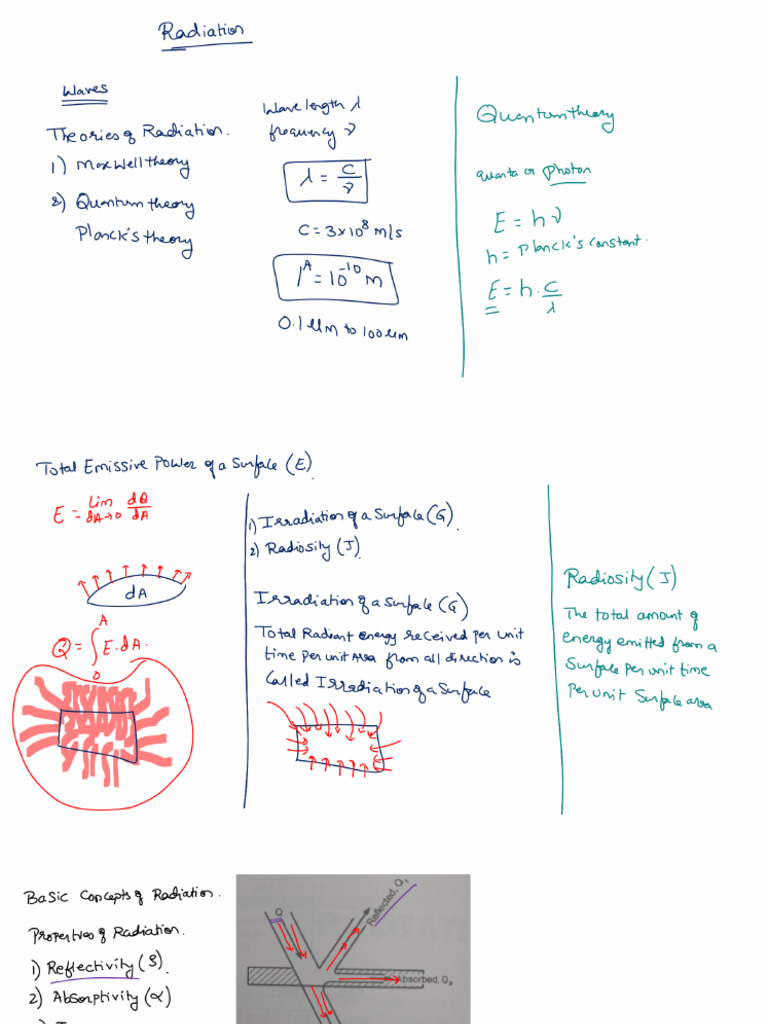 Radiation
Waves
Theories of Radiation.
1) Maxwell theory
2) Quantum theory
Planck's theory
Wave length λ
frequency ν
λ = C/ν
C = 3×10⁸ m/s
1 Å = 10⁻¹⁰ m
0.1 μm to 100 μm
Quantum theory
quanta or photon
E = hν
h = Planck's constant.
E = h·C/λ
Total Emissive Power of a Surface (E)
E = Lim dA→0 dQ/dA
dA
Q = ∫₀ᴬ E·dA.
1) Irradiation of a Surface (G)
2) Radiosity (J)
Irradiation of a Surface (G)
Total Radiant energy received per unit
time per unit Area from all direction is
called Irradiation of a Surface
Radiosity (J)
The total amount of
energy emitted from a
Surface per unit time
per unit Surface area
Basic Concepts of Radiation.
Properties of Radiation.
1) Reflectivity (ρ).
2) Absorptivity (α)
Q
Reflected, Qr
Absorbed, Qa